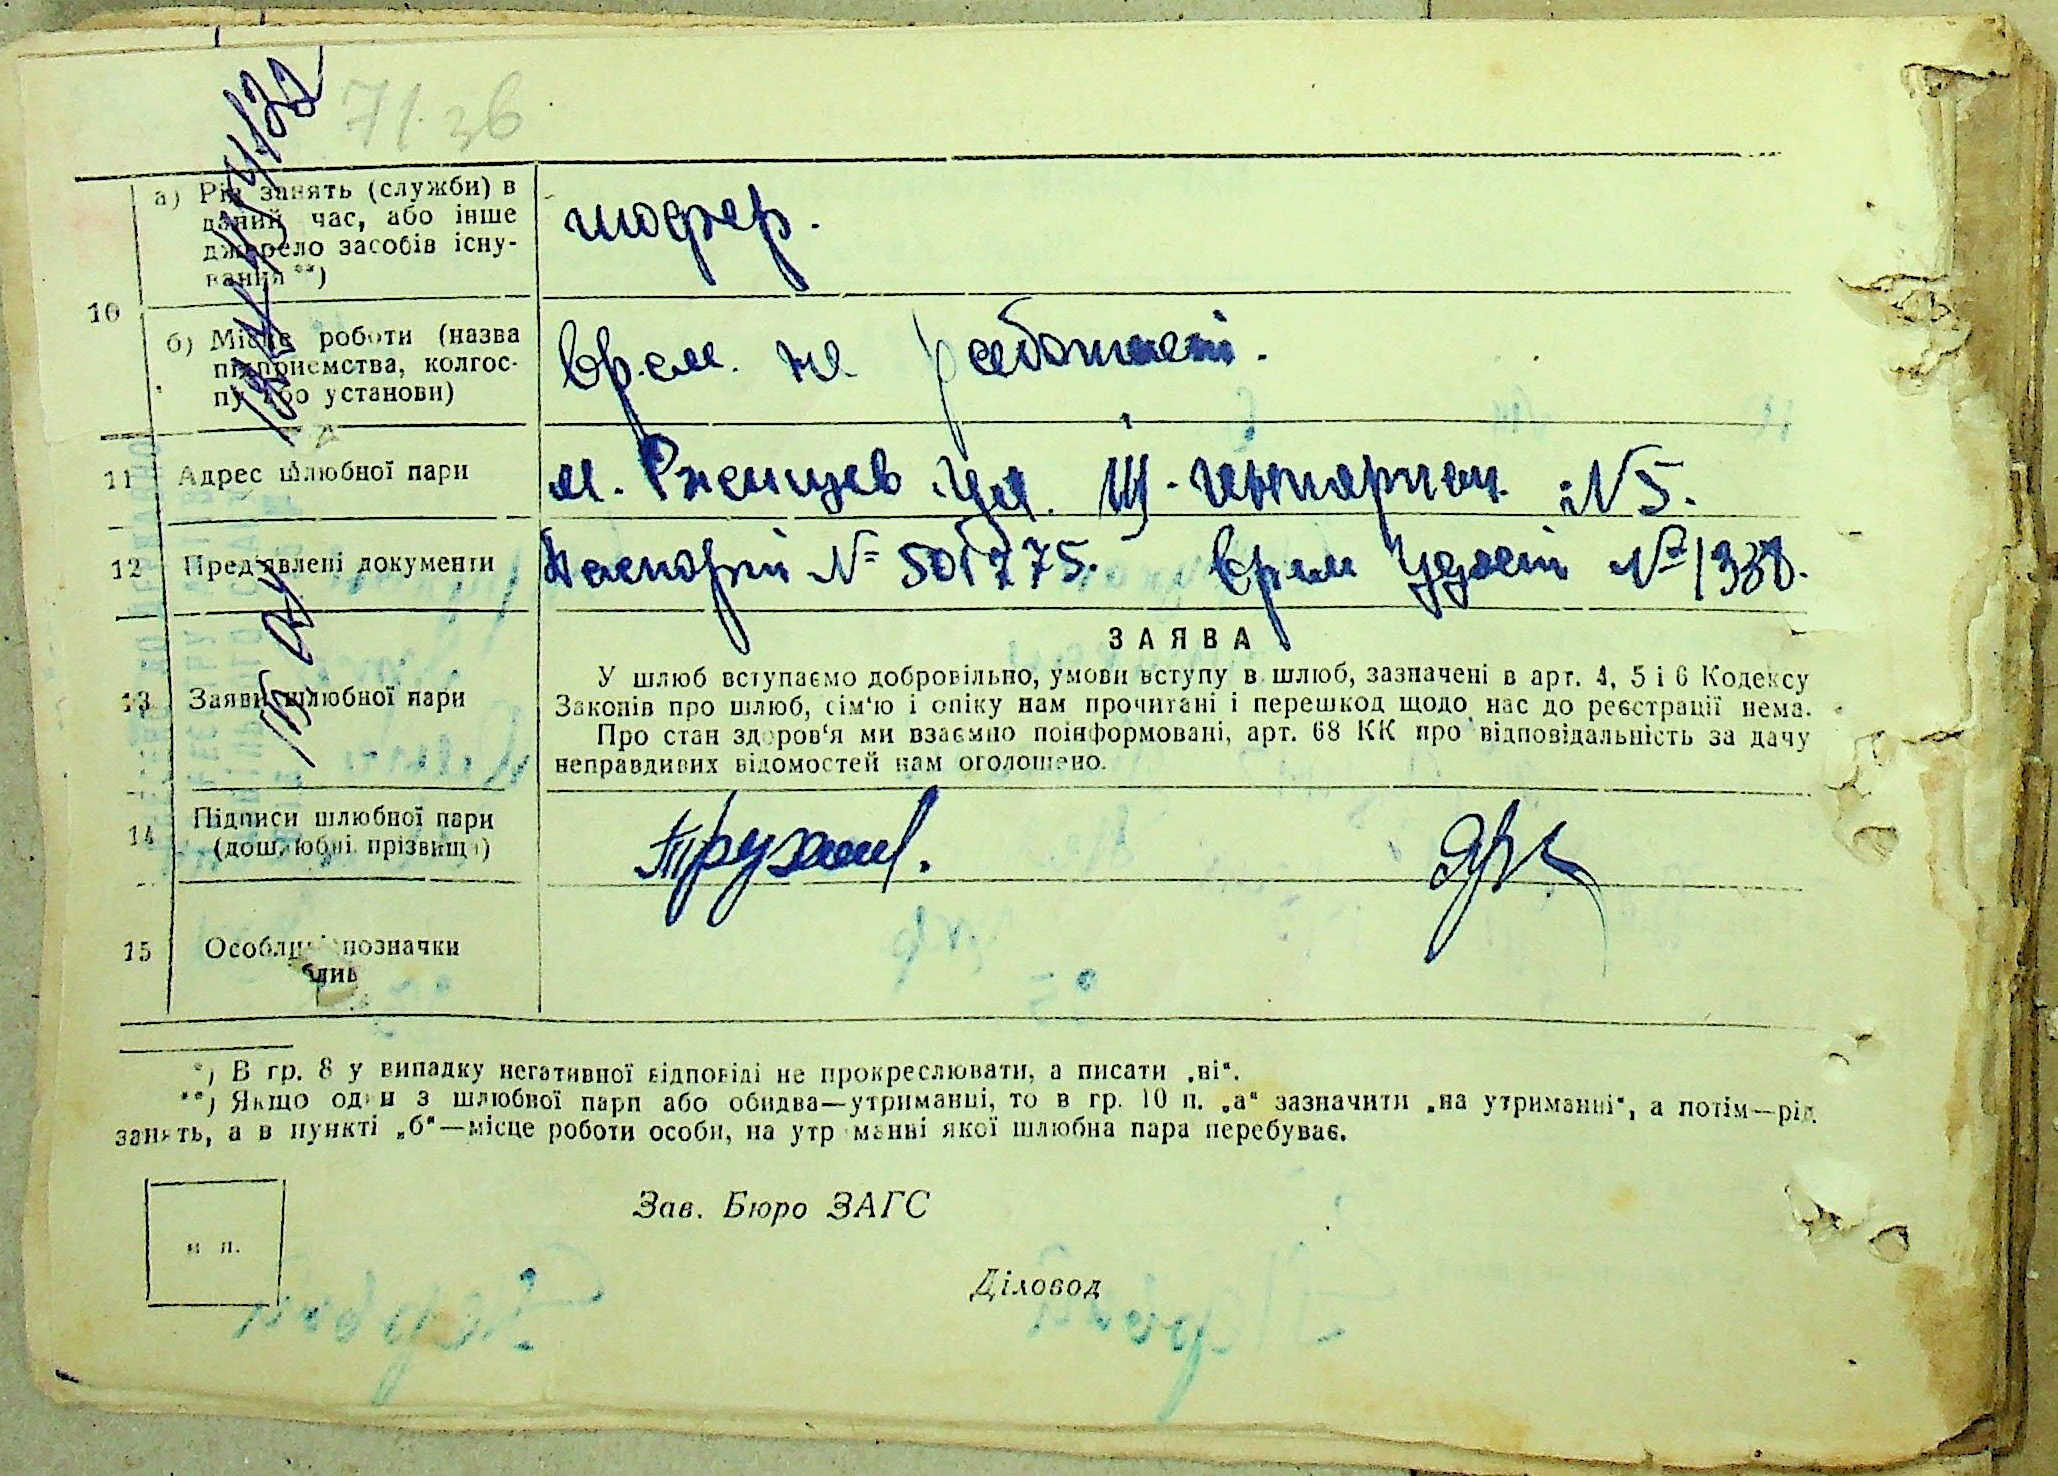 71. зв
а) Рід занять (служби) в
даний час, або інше
джерело засобів існу-
вання **)
шофер.
10
б) Місце роботи (назва
підприємства, колгос-
пу або установи)
врем. не работает.
11 Адрес шлюбної пари
м. Ржищев ул. № 5.
12 Пред'явлені документи
Паспорт № 501775. врем удост № 1338.
ЗАЯВА
13 Заяви шлюбної пари
У шлюб вступаємо добровільно, умови вступу в шлюб, зазначені в арт. 4, 5 і 6 Кодексу
Законів про шлюб, сім'ю і опіку нам прочитані і перешкод щодо нас до реєстрації нема.
Про стан здоров'я ми взаємно поінформовані, арт. 68 КК про відповідальність за дачу
неправдивих відомостей нам оголошено.
14 Підписи шлюбної пари
(дошлюбні прізвища)
15 Особливі позначки
*) В гр. 8 у випадку негативної відповіді не прокреслювати, а писати „ні“.
**) Якщо один з шлюбної пари або обидва—утриманці, то в гр. 10 п. „а“ зазначити „на утриманні“, а потім—рід
занять, а в пункті „б“—місце роботи особи, на утриманні якої шлюбна пара перебуває.
Зав. Бюро ЗАГС
м п.
Діловод